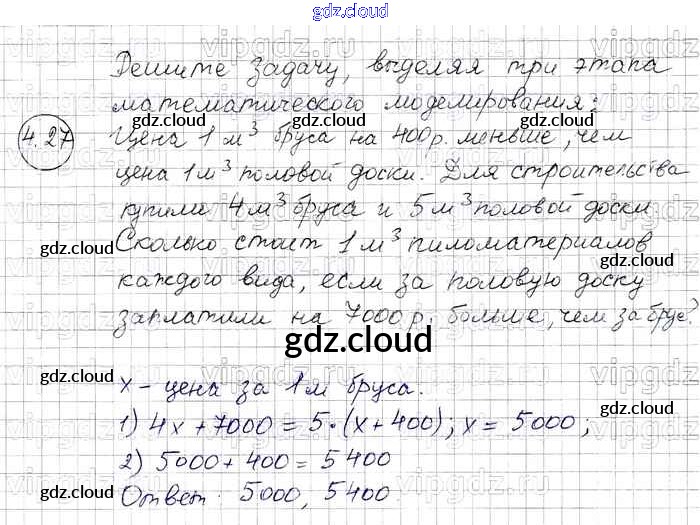 gdz.cloud
Решите задачу, выделяя три этапа
математического моделирования:
4.27
Цена 1 м³ бруса на 400р. меньше, чем
цена 1м³ половой доски. Для строительства
купили 4м³ бруса и 5м³ половой доски
Сколько стоит 1м³ пиломатериалов
каждого вида, если за половую доску
заплатили на 7000р. больше, чем за брус?
gdz.cloud
x - цена за 1м бруса.
1) 4x + 7000 = 5·(x + 400); x = 5000;
2) 5000 + 400 = 5400
Ответ: 5000, 5400